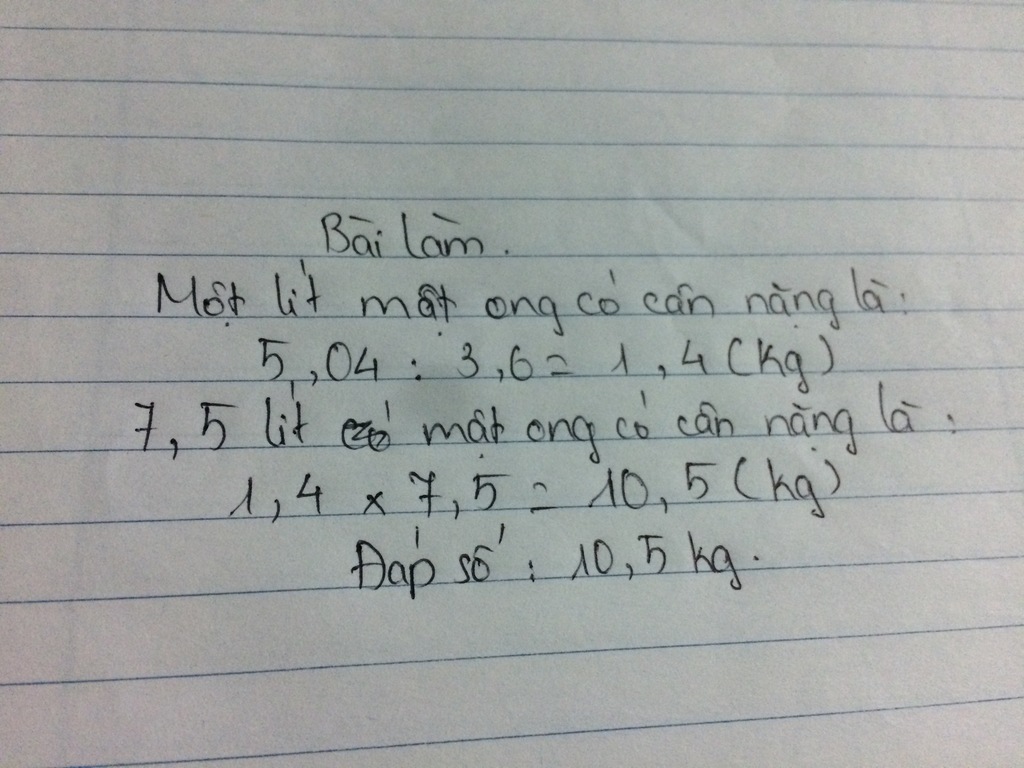 Bài làm.
Một lít mật ong có cân nặng là:
5,04 : 3,6 = 1,4 (kg)
7,5 lít mật ong có cân nặng là:
1,4 x 7,5 = 10,5 (kg)
Đáp số : 10,5 kg.